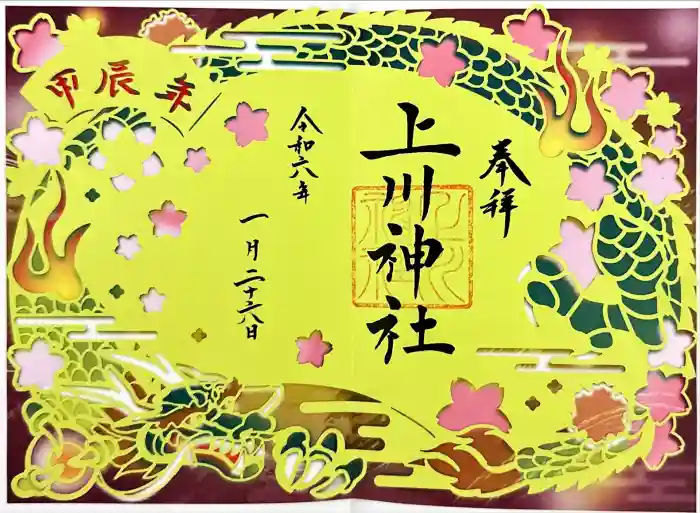 奉拝
上川神社
令和六年
一月二十八日
甲辰年